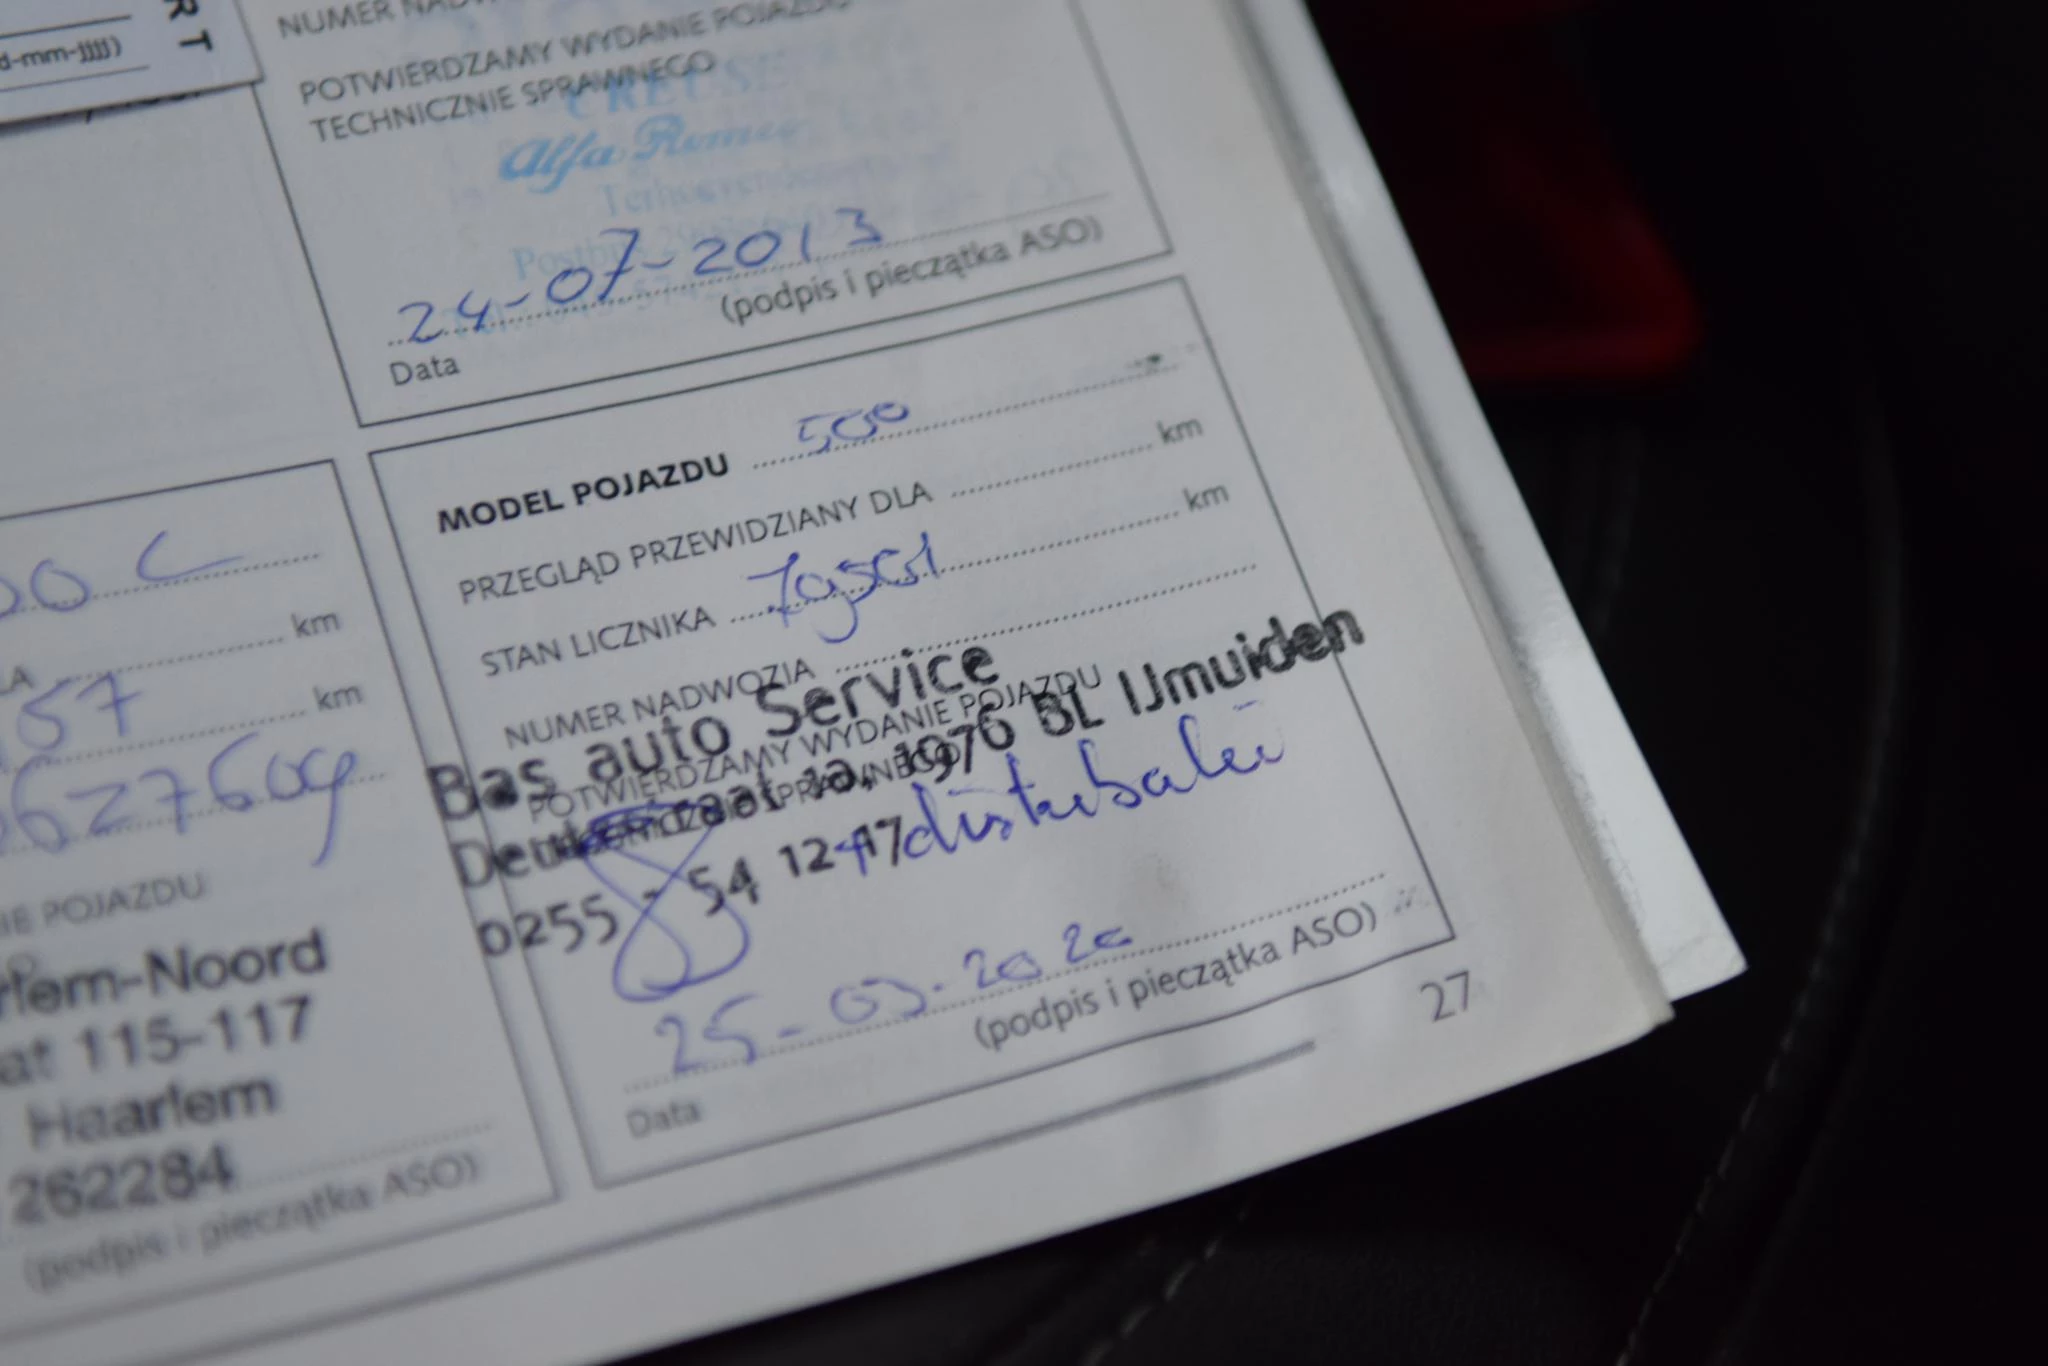 RT
d-mm-jjjj)
POTWIERDZAMY WYDANIE POJAZDU
TECHNICZNIE SPRAWNEGO
Alfa Romeo
24-07-2013
(podpis i pieczątka ASO)
Data
MODEL POJAZDU 500
PRZEGLĄD PRZEWIDZIANY DLA km
STAN LICZNIKA km
NUMER NADWOZIA
POTWIERDZAMY WYDANIE POJAZDU
Bas auto Service
1a, 1976 BL IJmuiden
0255 - 54 12 17
+ distributie
25-03-2020
(podpis i pieczątka ASO)
Data
27
00 C
LA km
57 km
627609
IE POJAZDU
rlem-Noord
at 115-117
Haarlem
262284
(podpis i pieczątka ASO)